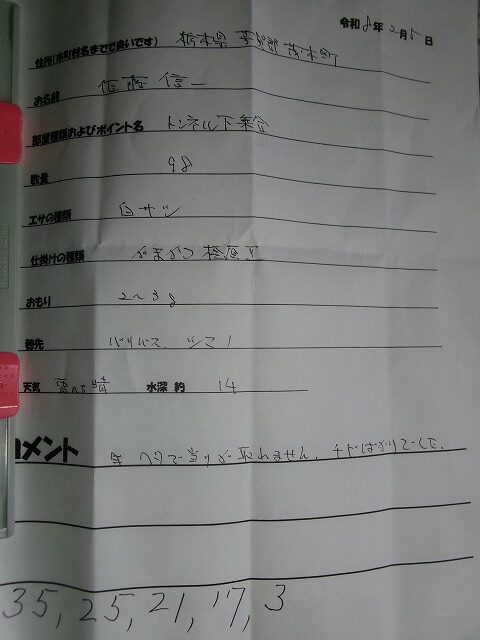 令和8年2月5日
住所(市町村名まで良いです) 栃木県 芳賀郡 茂木町
お名前 佐藤 信一
部屋種類およびポイント名 トンネル下 乗合
数量 98
エサの種類 白サシ
仕掛けの種類 がまかつ 桧原下
おもり 2〜3g
穂先 バリバス
天気 曇 晴 水深 約 14
コメント ヘタで当りが取れません。 ばかりでした。
35, 25, 21, 17, 3